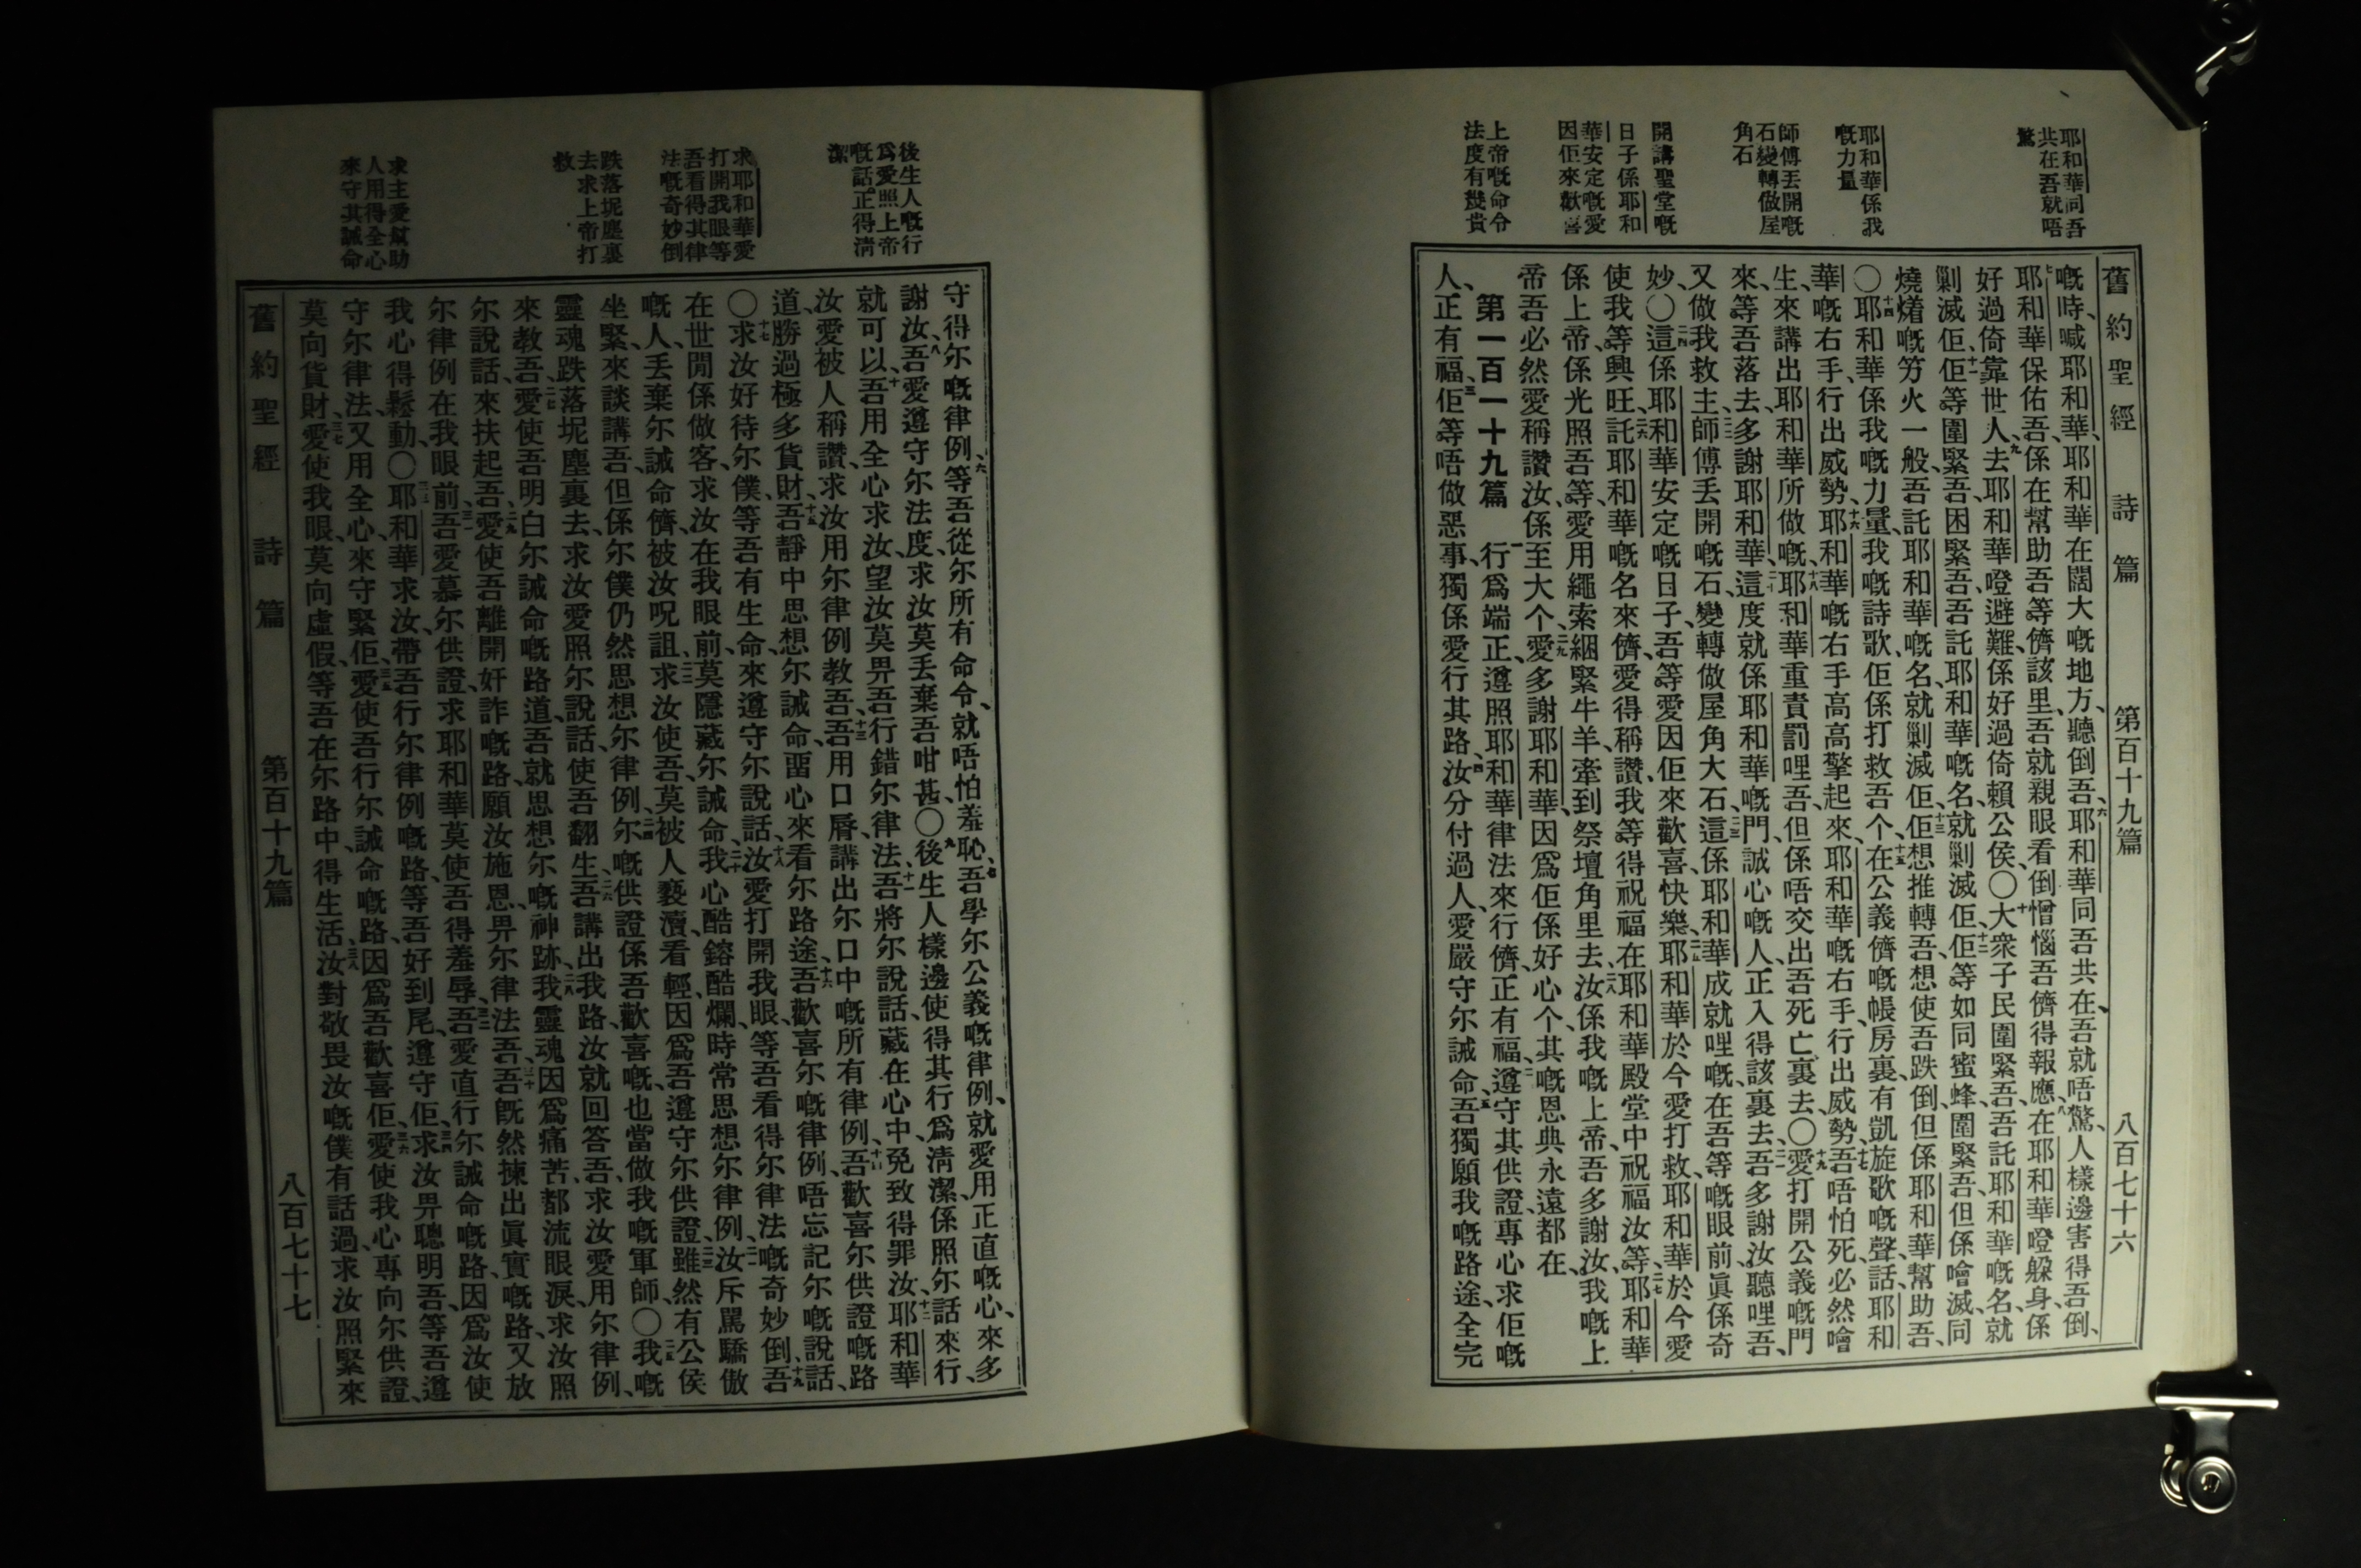 耶和華同吾
共在吾就唔
驚
耶和華係我
嘅力量
師傅丟開嘅
石變轉做屋
角石
開講聖堂嘅
日子係耶和
華安定嘅愛
因佢來歡喜
上帝嘅命令
法度有幾貴
舊約聖經 詩篇 第百十九篇 八百七十六
嘅時、喊耶和華、耶和華在闊大嘅地方、聽倒吾、六耶和華同吾共在、吾就唔驚、人樣邊害得吾倒、
七耶和華保佑吾、係在幫助吾等儕該里、吾就親眼看倒憎惱吾儕得報應、八在耶和華噔躲身、係
好過倚靠世人、九去耶和華噔避難、係好過倚賴公侯〇十大衆子民圍緊吾、吾託耶和華嘅名、就
剿滅佢、十一佢等圍緊吾、困緊吾、吾託耶和華嘅名、就剿滅佢、十二佢等如同蜜蜂、圍緊吾、但係噲滅、同
燒㸐嘅竻火一般、吾託耶和華嘅名、就剿滅佢、十三佢想推轉吾、想使吾跌倒、但係耶和華幫助吾、
〇十四耶和華、係我嘅力量、我嘅詩歌、佢係打救吾个、十五在公義儕嘅帳房裏、有凱旋歌嘅聲、話、耶和
華嘅右手、行出威勢、十六耶和華嘅右手高高擎起來、耶和華嘅右手、行出威勢、十七吾唔怕死、必然噲
生、來講出耶和華所做嘅、十八耶和華重責罰哩吾、但係唔交出吾死亡裏去〇十九愛打開公義嘅門
來、等吾落去、多謝耶和華、二十這度就係耶和華嘅門、誠心嘅人、正入得該裏去、二一吾多謝汝、聽哩吾、
又做我救主、二二師傅丟開嘅石、變轉做屋角大石、二三這係耶和華成就哩嘅、在吾等嘅眼前眞係奇
妙〇二四這係耶和華安定嘅日子、吾等愛因佢來歡喜快樂、二五耶和華於今愛打救、耶和華於今愛
使我等興旺、二六託耶和華嘅名來儕、愛得稱讚、我等得祝福、在耶和華殿堂中、祝福汝等、二七耶和華
係上帝、係光照吾等、愛用繩索綑緊牛羊、牽到祭壇角里去、二八汝係我嘅上帝、吾多謝汝、我嘅上
帝、吾必然愛稱讚汝、係至大个、二九愛多謝耶和華、因爲佢係好心个、其嘅恩典永遠都在、
第一百一十九篇 一行爲端正、遵照耶和華律法來行儕、正有福、二遵守其供證、專心求佢嘅
人、正有福、三佢等唔做惡事、獨係愛行其路、四汝分付過人、愛嚴守尔誡命、五吾獨願我嘅路途、全完
後生人嘅行
爲愛照上帝
嘅話正得淸
潔
求耶和華愛
打開我眼等
吾看得其律
法嘅奇妙倒
跌落坭塵裏
去求上帝打
救
求主愛幫助
人用得全心
來守其誡命
守得尔嘅律例、六等吾從尔所有命令、就唔怕羞恥、七吾學尔公義嘅律例、就愛用正直嘅心、來多
謝汝、八吾愛遵守尔法度、求汝莫丟棄吾咁甚〇九後生人樣邊使得其行爲淸潔、係照尔話來行、
就可以、十吾用全心求汝、望汝莫畀吾行錯尔律法、十一吾將尔說話、藏在心中、免致得罪汝、十二耶和華
汝愛被人稱讚、求汝用尔律例教吾、十三吾用口脣講出尔口中嘅所有律例、十四吾歡喜尔供證嘅路
道、勝過極多貨財、十五吾靜中思想尔誡命、畱心來看尔路途、十六吾歡喜尔嘅律例、唔忘記尔嘅說話、
〇十七求汝好待尔僕、等吾有生命、來遵守尔說話、十八汝愛打開我眼、等吾看得尔律法嘅奇妙倒、十九吾
在世閒係做客、求汝在我眼前、莫隱藏尔誡命、二十我心酷鎔酷爛、時常思想尔律例、二一汝斥罵驕傲
嘅人、丟棄尔誡命儕、被汝呪詛、二二求汝使吾、莫被人褻瀆、看輕、因爲吾遵守尔供證、二三雖然有公侯
坐緊、來談講吾、但係尔僕仍然思想尔律例、二四尔嘅供證、係吾歡喜嘅、也當做我嘅軍師〇二五我嘅
靈魂跌落坭塵裏去、求汝愛照尔說話、使吾翻生、二六吾講出我路、汝就回答吾、求汝愛用尔律例、
來教吾、二七愛使吾明白尔誡命嘅路道、吾就思想尔嘅神跡、二八我靈魂因爲痛苦、都流眼淚、求汝照
尔說話、來扶起吾、二九愛使吾離開奸詐嘅路、願汝施恩、畀尔律法吾、三十吾旣然揀出眞實嘅路、又放
尔律例在我眼前、三一吾愛慕尔供證、求耶和華莫使吾得羞辱、三二吾愛直行尔誡命嘅路、因爲汝使
我心得鬆動、〇三三耶和華求汝、帶吾行尔律例嘅路、等吾好到尾、遵守佢、三四求汝畀聰明吾、等吾遵
守尔律法、又用全心、來守緊佢、三五愛使吾行尔誡命嘅路、因爲吾歡喜佢、三六愛使我心專向尔供證、
莫向貨財、三七愛使我眼、莫向虛假、等吾在尔路中、得生活、三八汝對敬畏汝嘅僕有話過、求汝照緊來
舊約聖經 詩篇 第百十九篇 八百七十七